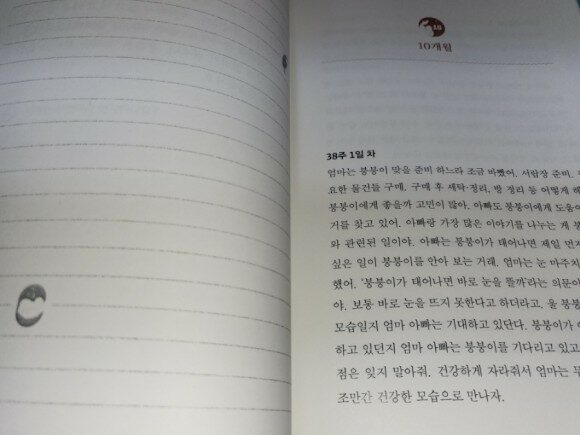 10
10개월
38주 1일 차
엄마는 붕붕이 맞을 준비 하느라 조금 바빴어. 서랍장 준비,
요한 물건들 구매, 구매 후 세탁·정리, 방 정리 등 어떻게 해
붕붕이에게 좋을까 고민이 많아. 아빠도 붕붕이에게 도움이
거를 찾고 있어. 아빠랑 가장 많은 이야기를 나누는 게 붕
와 관련된 일이야. 아빠는 붕붕이가 태어나면 제일 먼저
싶은 일이 붕붕이를 안아 보는 거래. 엄마는 눈 마주치
했어. '붕붕이가 태어나면 바로 눈을 뜰까'라는 의문이
야. 보통 바로 눈을 뜨지 못한다고 하더라고. 울 붕붕
모습일지 엄마 아빠는 기대하고 있단다. 붕붕이가
하고 있던지 엄마 아빠는 붕붕이를 기다리고 있고
점은 잊지 말아줘. 건강하게 자라줘서 엄마는
조만간 건강한 모습으로 만나자.